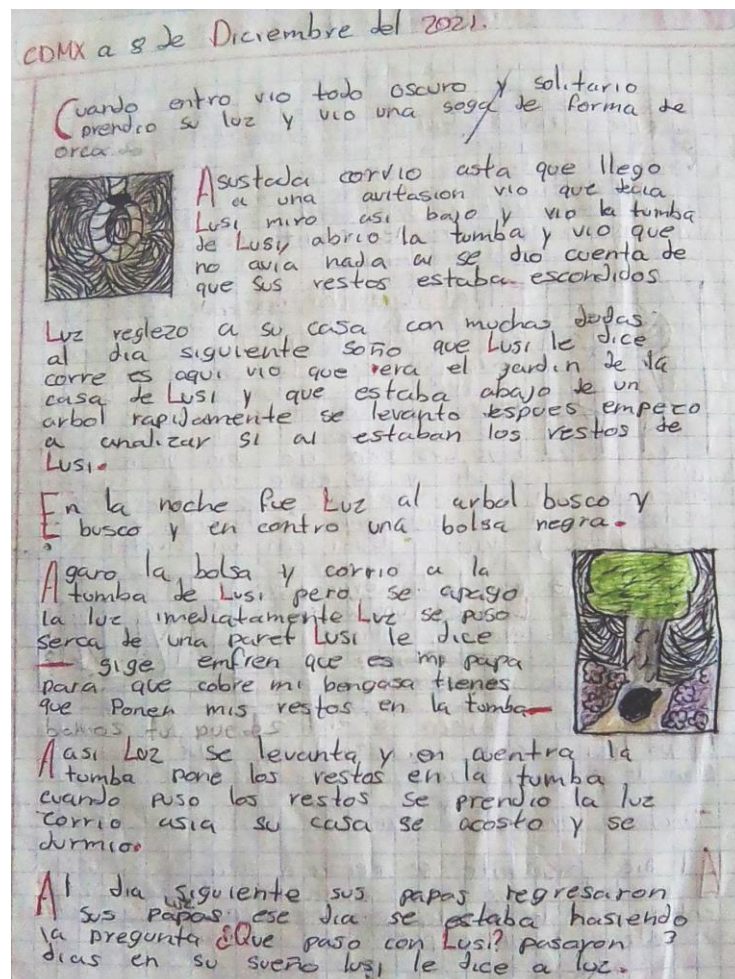 CDMX a 8 de Diciembre del 2021.
Cuando entro vio todo oscuro y solitario
prendio su luz y vio una soga de forma de
orca
Asustada corrio asta que llego
a una avitasion vio que decia
Lusi miro asi bajo y vio la tumba
de Lusi, abrio la tumba y vio que
no avia nada ai se dio cuenta de
que sus restos estaba escondidos
Luz reglezo a su casa con muchas dudas
al dia siguiente soño que Lusi le dice
corre es aqui vio que era el jardin de la
casa de Lusi y que estaba abajo de un
arbol rapidamente se levanto espues empezo
a analizar si ai estaban los restos de
Lusi.
En la noche fue Luz al arbol busco y
busco y en contro una bolsa negra.
Agaro la bolsa y corrio a la
tumba de Lusi pero se apago
la luz imediatamente Luz se puso
serca de una paret Lusi le dice
— sige emfren que es mi papa
para que cobre mi bengasa tienes
que Poner mis restos en la tumba—
bamos tu puedes
Aasi Luz se levanta y en cuentra la
tumba pone los restos en la tumba
cuando puso los restos se prendio la luz
corrio asia su casa se acosto y se
durmio.
Al dia siguiente sus papas regresaron
sus papas ese dia se estaba hasiendo
la pregunta ¿Que paso con Lusi? pasaron 3
dias en su sueño lusi le dice a luz.